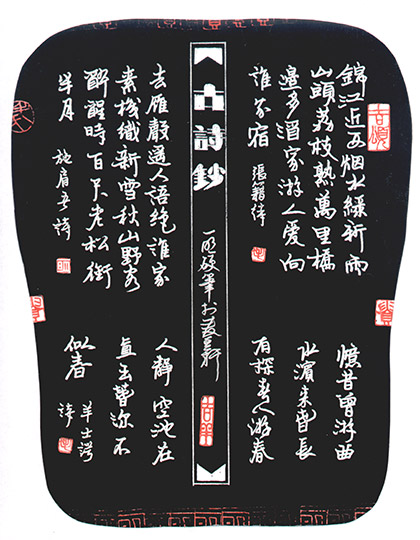 錦江近西烟水綠新雨
山頭荔枝熟萬里橋
邊多酒家游人愛向
誰家宿 張籍詩
憶昔曾游曲
水濱未春長
有探春人游春
古詩鈔
硬筆
去雁聲遙人語絕誰家
素機織新雪秋山野客
醉醒時百尺老松銜
半月 施肩吾詩
人靜空池在
直至春深不
似春 羊士諤
詩